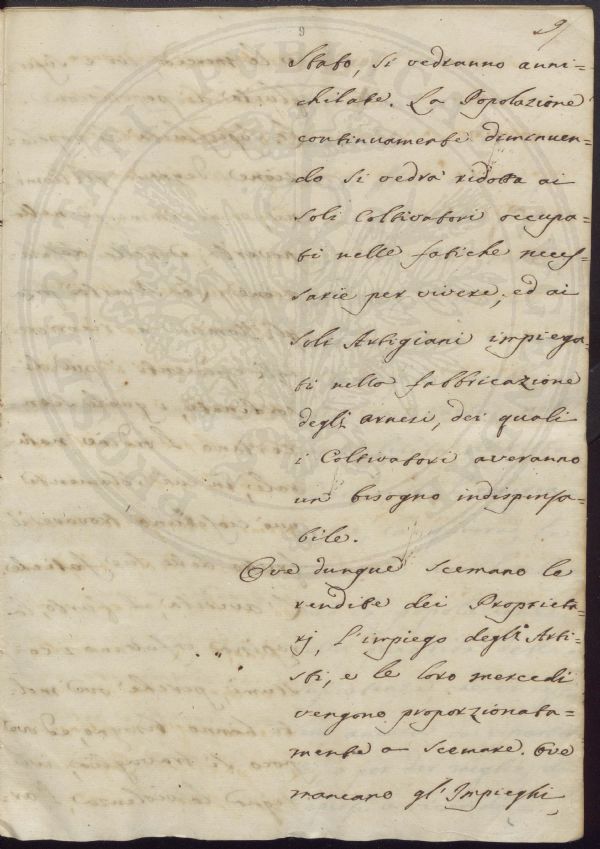 9
9
Stato, si vedranno anni=
chilate. La Popolazione
continuamente diminuen=
do si vedrà ridotta ai
soli Coltivatori occupa=
ti nelle fatiche neces=
sarie per vivere, ed ai
soli Artigiani impiega=
ti nella fabbricazione
degli arnesi, dei quali
i Coltivatori averanno
un bisogno indispensa=
bile.
Ove dunque scemano le
rendite dei Proprieta=
rj, l'impiego degli Arti=
sti, e le loro mercedi
vengono proporzionata=
mente a scemare. Ove
mancano gl'Impieghi,